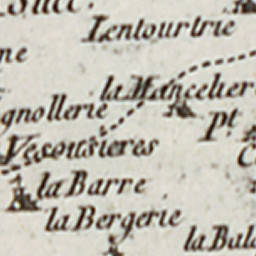 Lentourtrie
ne
la Mancelier
gnollerie
Pt.
Vesousieres
la Barre
la Bergerie
la Bala